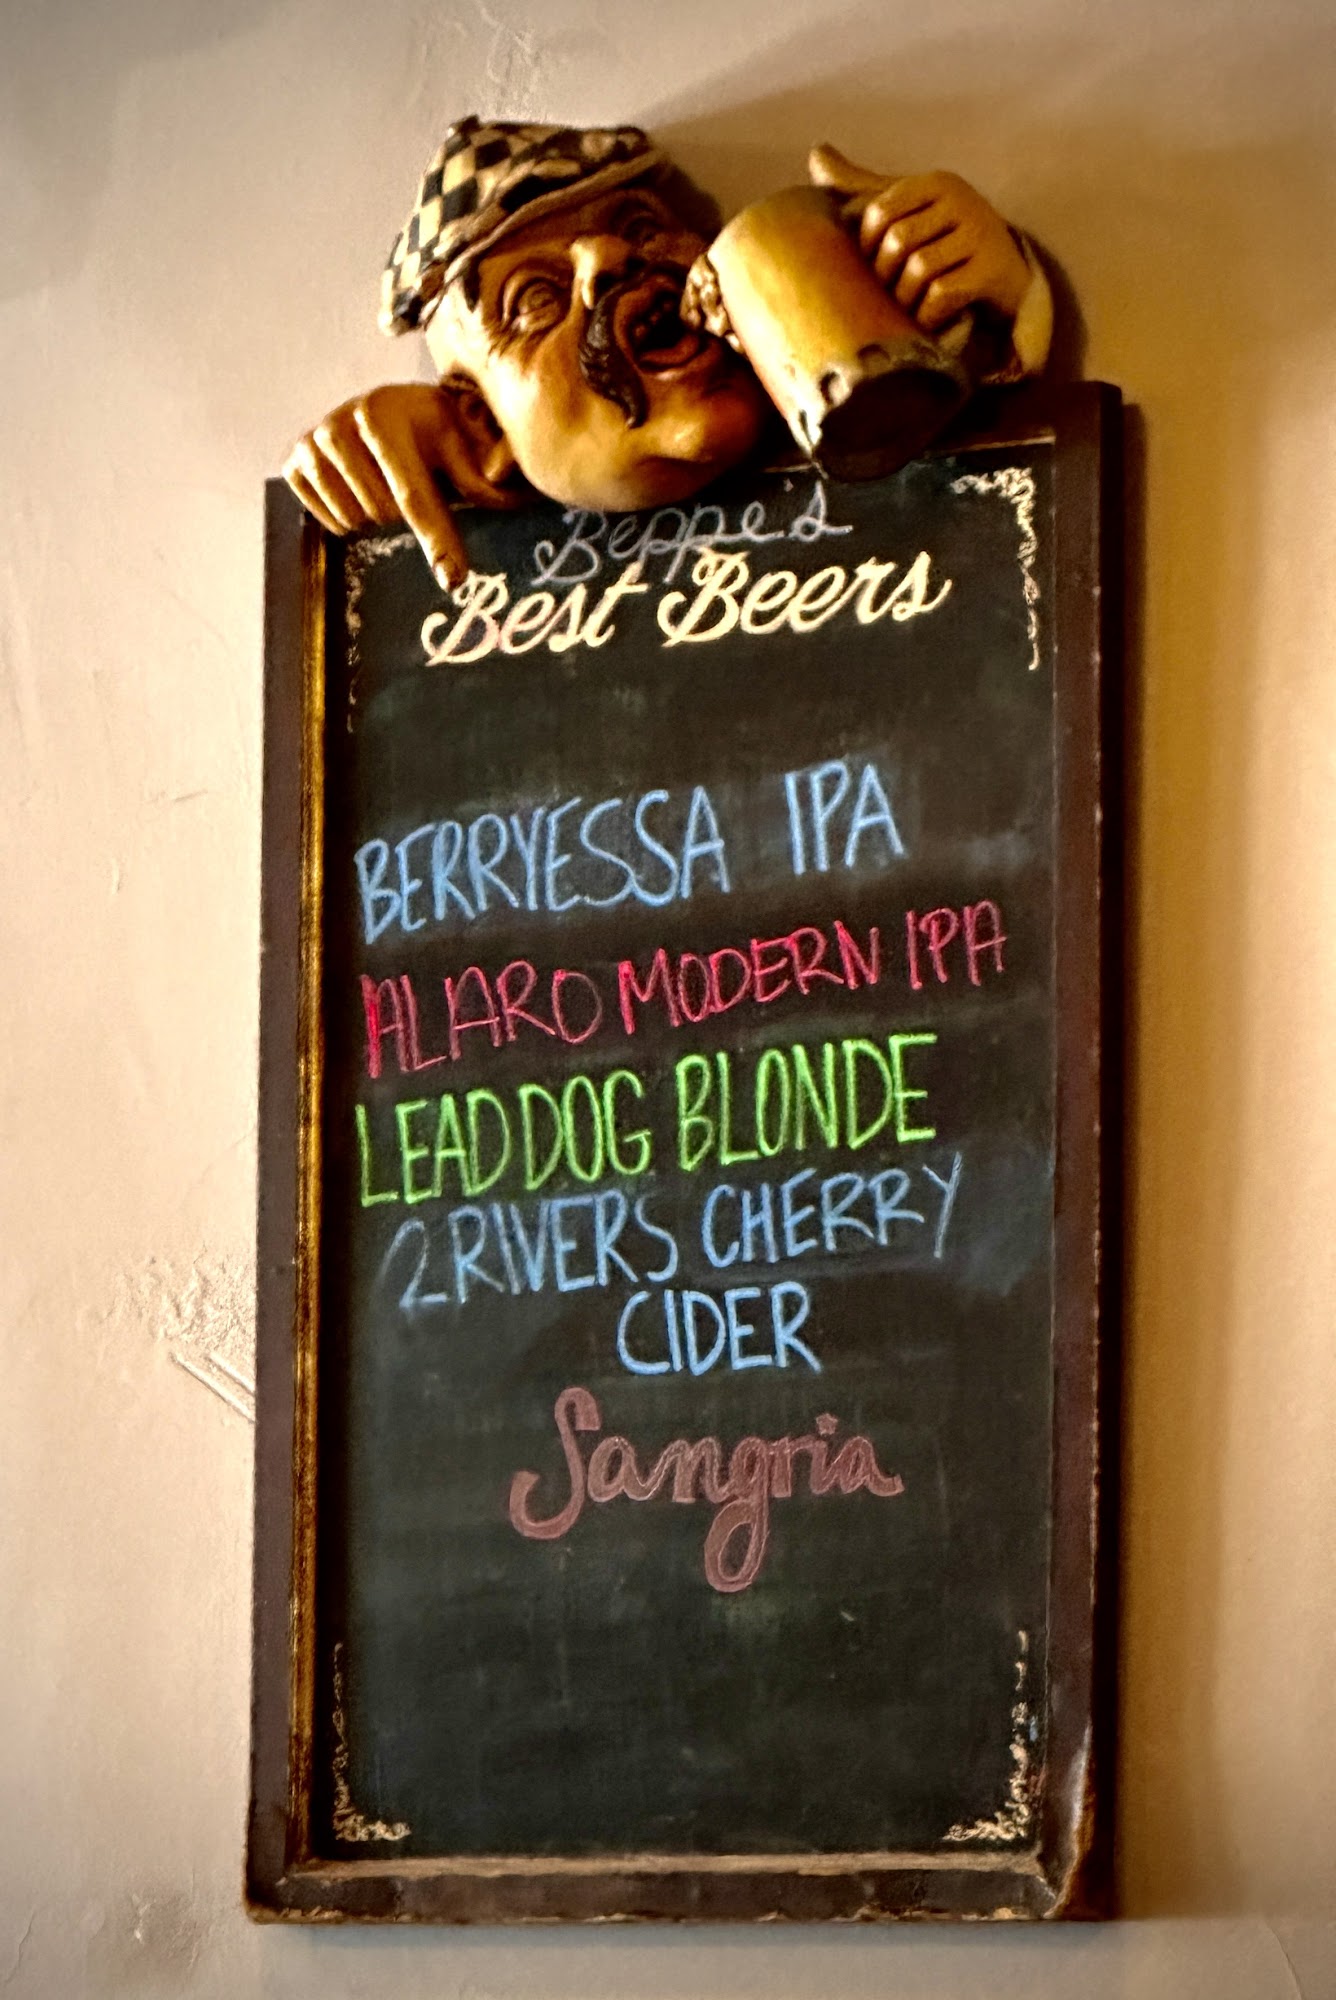 Beppe's
Best Beers
BERRYESSA IPA
ALARO MODERN IPA
LEAD DOG BLONDE
2 RIVERS CHERRY
CIDER
Sangria